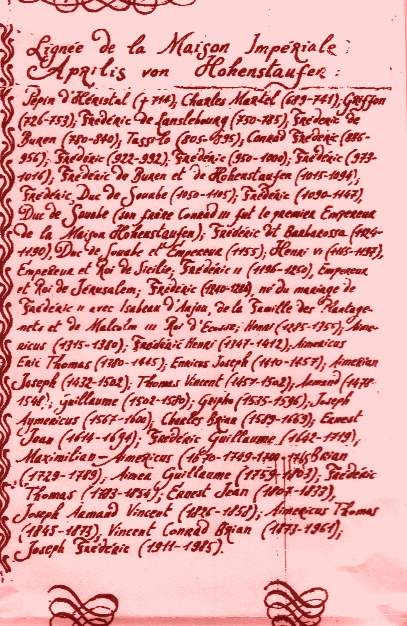 Lignée de la Maison Impériale
Aprilis von Hohenstaufen :
Pepin d'Héristal († 714), Charles Martel (689-741), Griffon
(726-753), Frédéric de Lanslebourg (750-785), Frédéric de
Buren (780-840), Tassilo (805-895), Conrad Frédéric (886-
956), Frédéric (922-992), Frédéric (950-1000), Frédéric (979-
1016), Frédéric de Buren et de Hohenstaufen (1015-1094),
Frédéric, Duc de Souabe (1050-1105), Frédéric (1090-1147),
Duc de Souabe (son frère Conrad III fut le premier Empereur
de la Maison Hohenstaufen); Frédéric Ier Barbarossa (1124-
1190), Duc de Souabe et Empereur (1155); Henri VI (1165-1197),
Empereur et Roi de Sicile; Frédéric II (1196-1250), Empereur
et Roi de Jérusalem; Frédéric né du mariage de
Frédéric II avec Isabeau d'Anjou, de la Famille des Plantage-
nets et de Malcolm III Roi d'Ecosse; Henri (1275-1355); Aime-
ricus (1315-1380); Frédéric Henri (1347-1412); Aimericus
Eric Thomas (1380-1445); Enricus Joseph (1410-1457); Aimerian
Joseph (1432-1502); Thomas Vincent (1457-1502); Armand (1478-
1548); Guillaume (1502-1580); Gripho (1535-1596); Joseph
Aymericus (1567-1600); Charles Brian (1589-1669); Ernest
Jean (1614-1694); Frédéric Guillaume (1642-1719),
Maximilian-Americus Brian
(1729-1789); Aimer Guillaume (1759-1803); Frédéric
Thomas (1783-1854); Ernest Jean (1807-1873),
Joseph Armand Vincent (1826-1858); Aimericus Thomas
(1845-1873), Vincent Conrad Brian (1873-1961);
Joseph Frédéric (1911-1985).